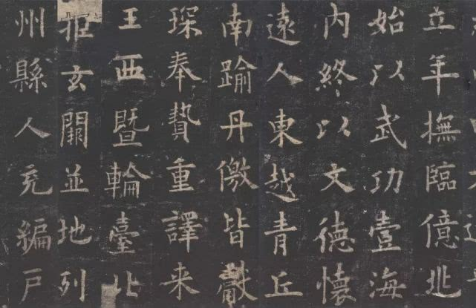 立年撫臨億兆
始以武功壹海
内終以文德懷
遠人東越青丘
南踰丹徼皆獻
琛奉贄重譯来
王西暨輪臺北
拒玄闕並地列
州縣人充編戶